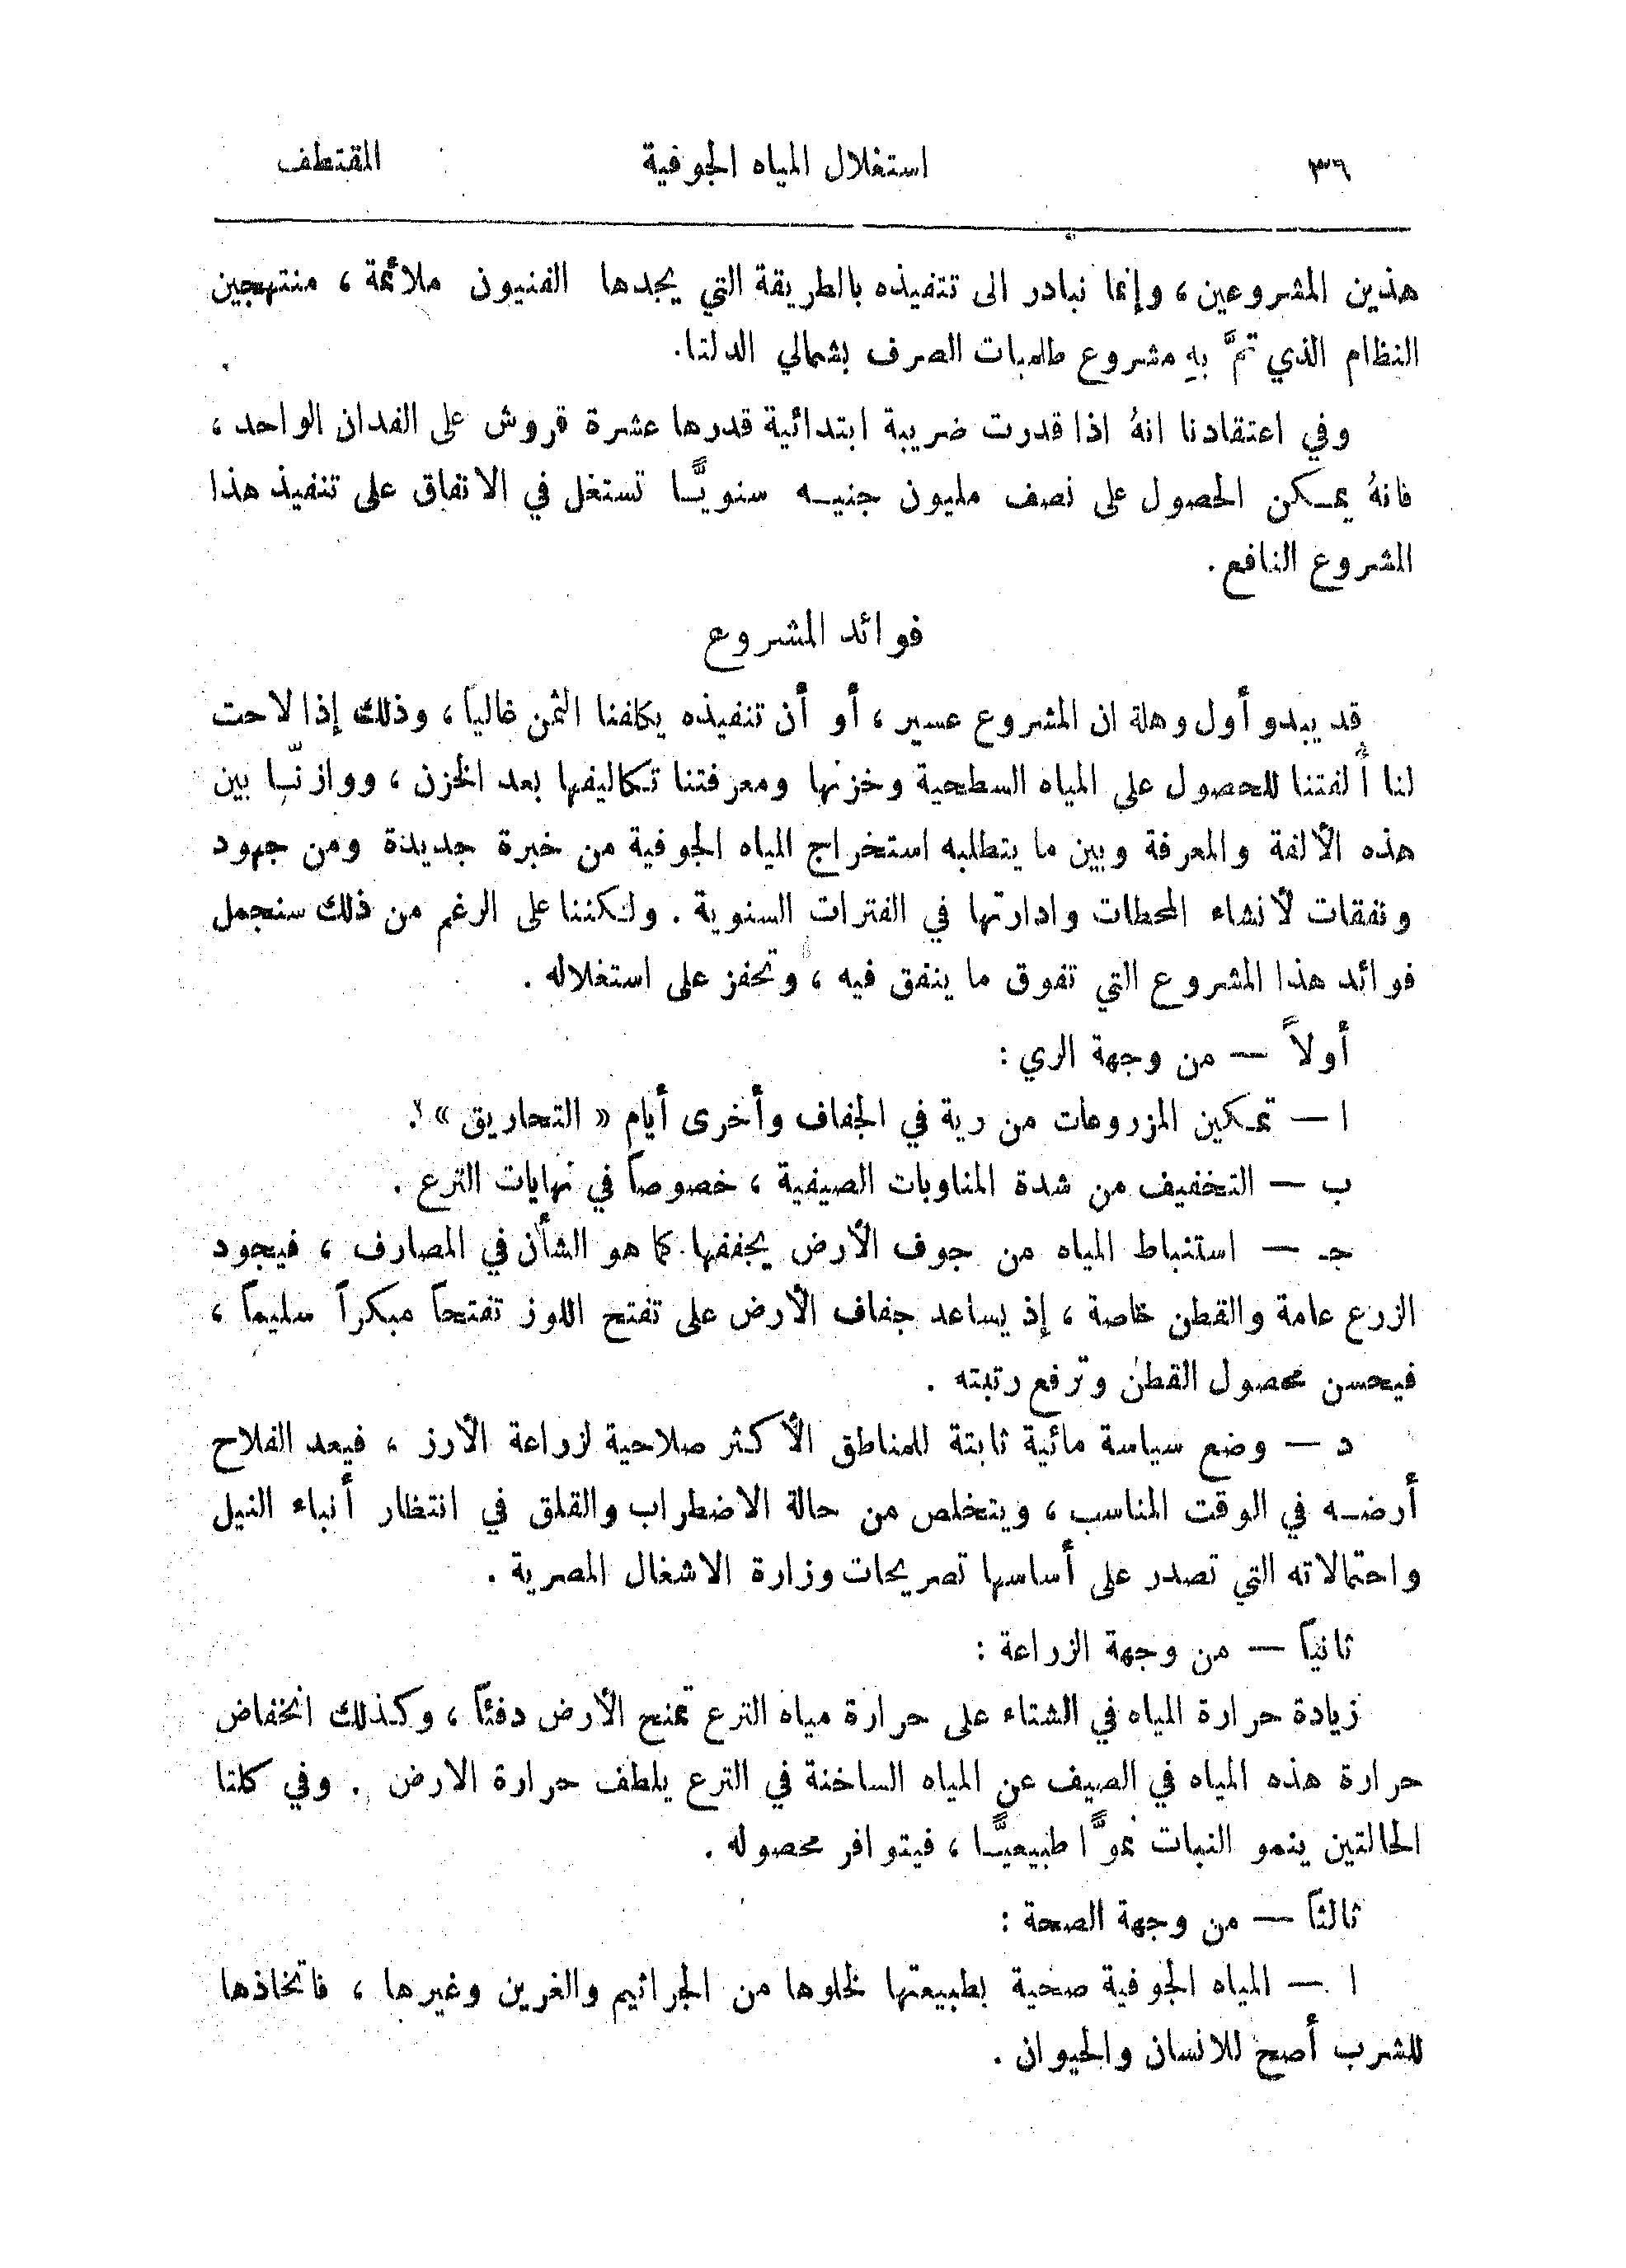 ٣٦ استغلال المياه الجوفية المقتطف
هذين المشروعين ، وإنما نبادر الى تتفيذه بالطريقة التي يجدها الفنيون ملائمة ، منتهجين
النظام الذي تمَّ بهِ مشروع طلمبات الصرف بشمالي الدلتا.
وفي اعتقادنا انهُ اذا قدرت ضريبة ابتدائية قدرها عشرة قروش على الفدان الواحد ،
فانهُ يمكن الحصول على نصف مليون جنيه سنويًّا تستغل في الاتفاق على تنفيذ هذا
المشروع النافع .
فوائد المشروع
قد يبدو أول وهلة ان المشروع عسير ، أو أن تنفيذه يكلفنا الثمن غالياً ، وذلك إذا لاحت
لنا أُلفتنا للحصول على المياه السطحية وخزنها ومعرفتنا تكاليفها بعد الخزن ، ووازنّا بين
هذه الألفة والمعرفة وبين ما يتطلبه استخراج المياه الجوفية من خبرة جديدة ومن جهود
ونفقات لأنشاء المحطات وادارتها في الفترات السنوية . ولكننا على الرغم من ذلك سنجمل
فوائد هذا المشروع التي تفوق ما ينفق فيه ، وتحفز على استغلاله .
أولاً — من وجهة الري :
ا — تمكين المزروعات من رية في الجفاف وأخرى أيام « التحاريق » .
ب — التخفيف من شدة المناوبات الصيفية ، خصوصاً في نهايات الترع .
جـ — استنباط المياه من جوف الأرض يجففها كما هو الشأن في المصارف ، فيجود
الزرع عامة والقطن خاصة ، إذ يساعد جفاف الأرض على تفتح اللوز تفتحاً مبكراً سليماً ،
فيحسن محصول القطن وترفع رتبته .
د — وضع سياسة مائية ثابتة للمناطق الأكثر صلاحية لزراعة الأرز ، فيعد الفلاح
أرضه في الوقت المناسب ، ويتخلص من حالة الاضطراب والقلق في انتظار أنباء النيل
واحتمالاته التي تصدر على أساسها تصريحات وزارة الاشغال المصرية .
ثانياً — من وجهة الزراعة :
زيادة حرارة المياه في الشتاء على حرارة مياه الترع تمنح الأرض دفئاً ، وكذلك انخفاض
حرارة هذه المياه في الصيف عن المياه الساخنة في الترع يلطف حرارة الارض . وفي كلتا
الحالتين ينمو النبات نموًّا طبيعيًّا ، فيتوافر محصوله .
ثالثاً — من وجهة الصحة :
ا — المياه الجوفية صحية بطبيعتها لخلوها من الجراثيم والغرين وغيرها ، فاتخاذها
للشرب أصح للانسان والحيوان .